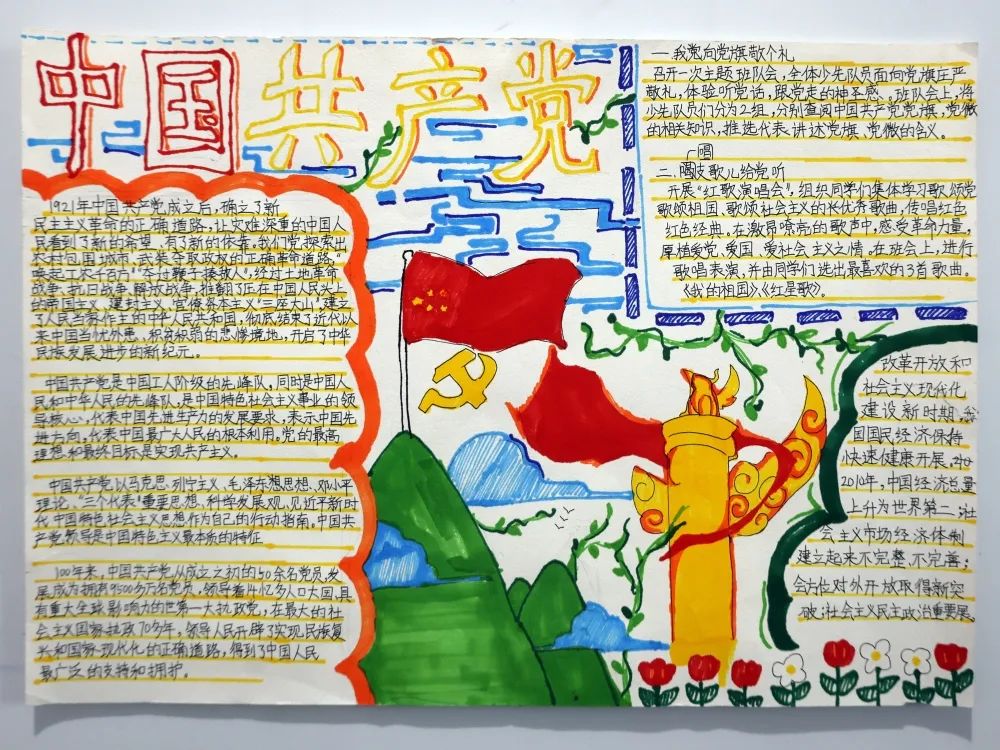 中国共产党
1921年中国共产党成立后，确立了新
民主主义革命的正确道路，让灾难深重的中国人
民看到了新的希望、有了新的依靠。我们党探索出
农村包围城市、武装夺取政权的正确革命道路，“
唤起工农千百万”“夺过鞭子揍敌人”，经过土地革命
战争、抗日战争、解放战争，推翻了压在中国人民头上
的帝国主义、封建主义、官僚资本主义“三座大山”，建立
了人民当家作主的中华人民共和国，彻底结束了近代以
来中国内忧外患、积贫积弱的悲惨境地，开启了中华
民族发展进步的新纪元。
中国共产党是中国工人阶级的先锋队，同时是中国人
民和中华人民的先锋队，是中国特色社会主义事业的领
导核心，代表中国先进生产力的发展要求，表示中国先
进方向，代表中国最广大人民的根本利用。党的最高
理想和最终目标是实现共产主义。
中国共产党以马克思、列宁主义、毛泽东想思想、邓小平
理论、“三个代表”重要思想、科学发展观、见近平新时
代中国特色社会主义思想作为自己的行动指南，中国共
产党领导是中国特色主义最本质的特征
100年来，中国共产党从成立之初的50余名党员，发
展成为拥有9500多万名党员，领导着14亿多人口大国，具
有重大全球影响力的世第一大执政党，在最大的社
会主义国家执政70多年，领导人民开辟了实现民族复
兴和国家现代化的正确道路，得到了中国人民
最广泛的支持和拥护。
一我想向党旗敬个礼
召开一次主题班队会，全体少先队员面向党旗庄严
敬礼，体验听党话，跟党走的神圣感。班队会上，将
少先队员们分为2组，分别查阅中国共产党党旗、党徽
的相关知识，推选代表讲述党旗、党徽的含义。
唱
二、唱支歌儿给党听
开展“红歌演唱会”，组织同学们集体学习歌颂党
歌颂祖国、歌颂社会主义的长优秀歌曲，传唱红色
红色经典，在激昂嘹亮的歌声中，感受革命力量，
厚植爱党、爱国、爱社会主义之情。在班会上，进行
歌唱表演，并由同学们选出最喜欢的3首歌曲。
《我的祖国》、《红星歌》。
改革开放和
社会主义现代化
建设新时期，我
国国民经济保持
快速健康开展。
2010年，中国经济总量
上升为世界第二；社
会主义市场经济体制
建立起来不完整不完善；
全方位对外开放取得新突
破；社会主义民主政治重要展